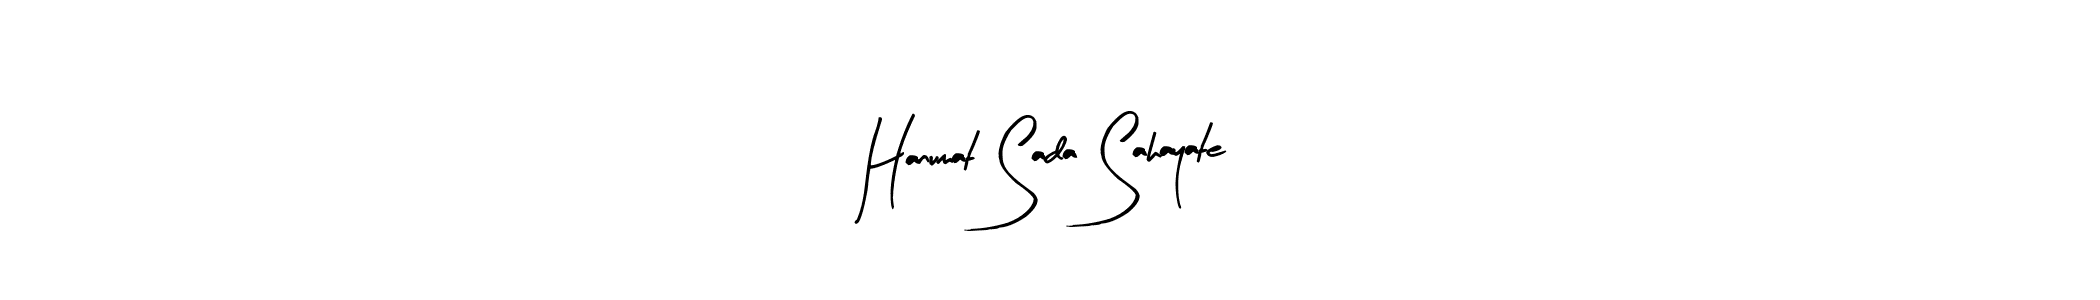 Hanumat Sada Sahayate